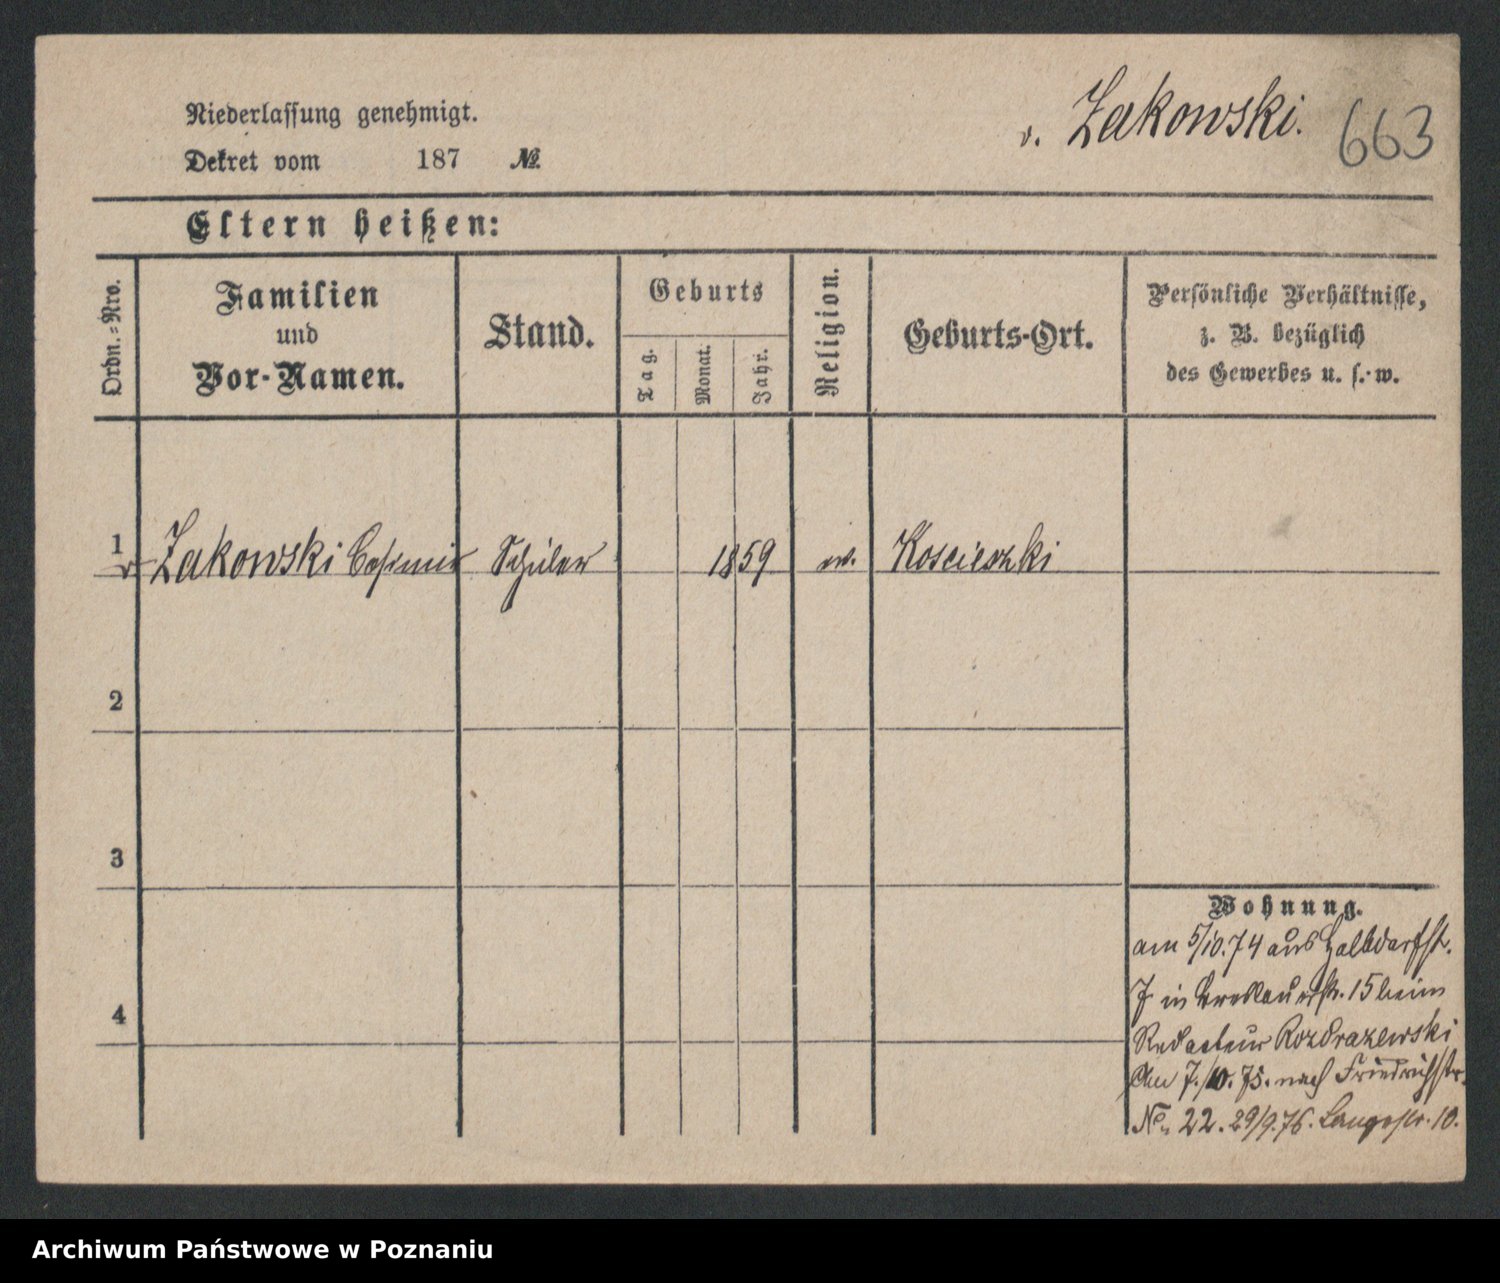 Niederlassung genehmigt.
v. Zakowski.
663
Dekret vom 187 №
Eltern heißen:
Ordn.-Nro.
Familien
und
Vor-Namen.
Stand.
Geburts
Tag.
Monat.
Jahr.
Religion.
Geburts-Ort.
Persönliche Verhältnisse,
z. B. bezüglich
des Gewerbes u. s. w.
1
v Zakowski Casimir Schüler 1859 Koscieszki
2
3
4
Wohnung.
am 5/10.74 aus Halbdorfst.
7 in Breslauerstr. 15 beim
Redacteur Rozdrazewski
Am 7./10. 75. nach Friedrichstr.
No 22. 29/9.76. Langestr. 10.
Archiwum Państwowe w Poznaniu